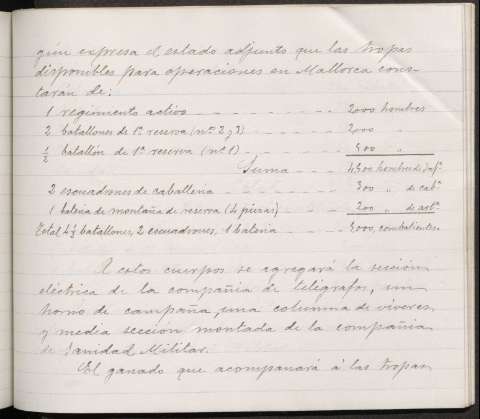 gún expresa el estado adjunto que las tropas
disponibles para operaciones en Mallorca cons-
tarán de:
1 regimiento activo - - - - - - - - 2000 hombres
2 batallones de 1ª reserva (nos 2 y 3) - - - - - 2000 "
1/2 batallón de 1ª reserva (nº 1) - - - - - 500 "
Suma - - - 4500 hombres de Infª
2 escuadrones de caballeria - - - - - 300 " de cabª
1 bateria de montaña de reserva (4 piezas) - - - 200 " de artª
Total 4 1/2 batallones, 2 escuadrones, 1 bateria - - - - 5000, combatientes.
A estos cuerpos se agregará la sección
eléctrica de la compañia de telégrafos, un
horno de campaña, una columna de viveres,
y media seccion montada de la compañia
de Sanidad Militar.
El ganado que acompañará á las tropas